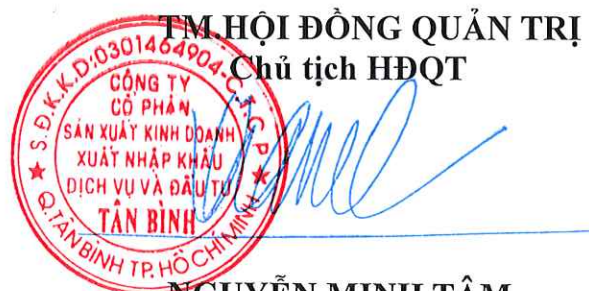 TM.HỘI ĐỒNG QUẢN TRỊ
Chủ tịch HĐQT
S.Đ.K.K.D:0301464904-C.T.C.P
CÔNG TY
CỔ PHẦN
SẢN XUẤT KINH DOANH
XUẤT NHẬP KHẨU
DỊCH VỤ VÀ ĐẦU TƯ
TÂN BÌNH
Q.TÂN BÌNH TP. HỒ CHÍ MINH
NGUYỄN MINH TÂM